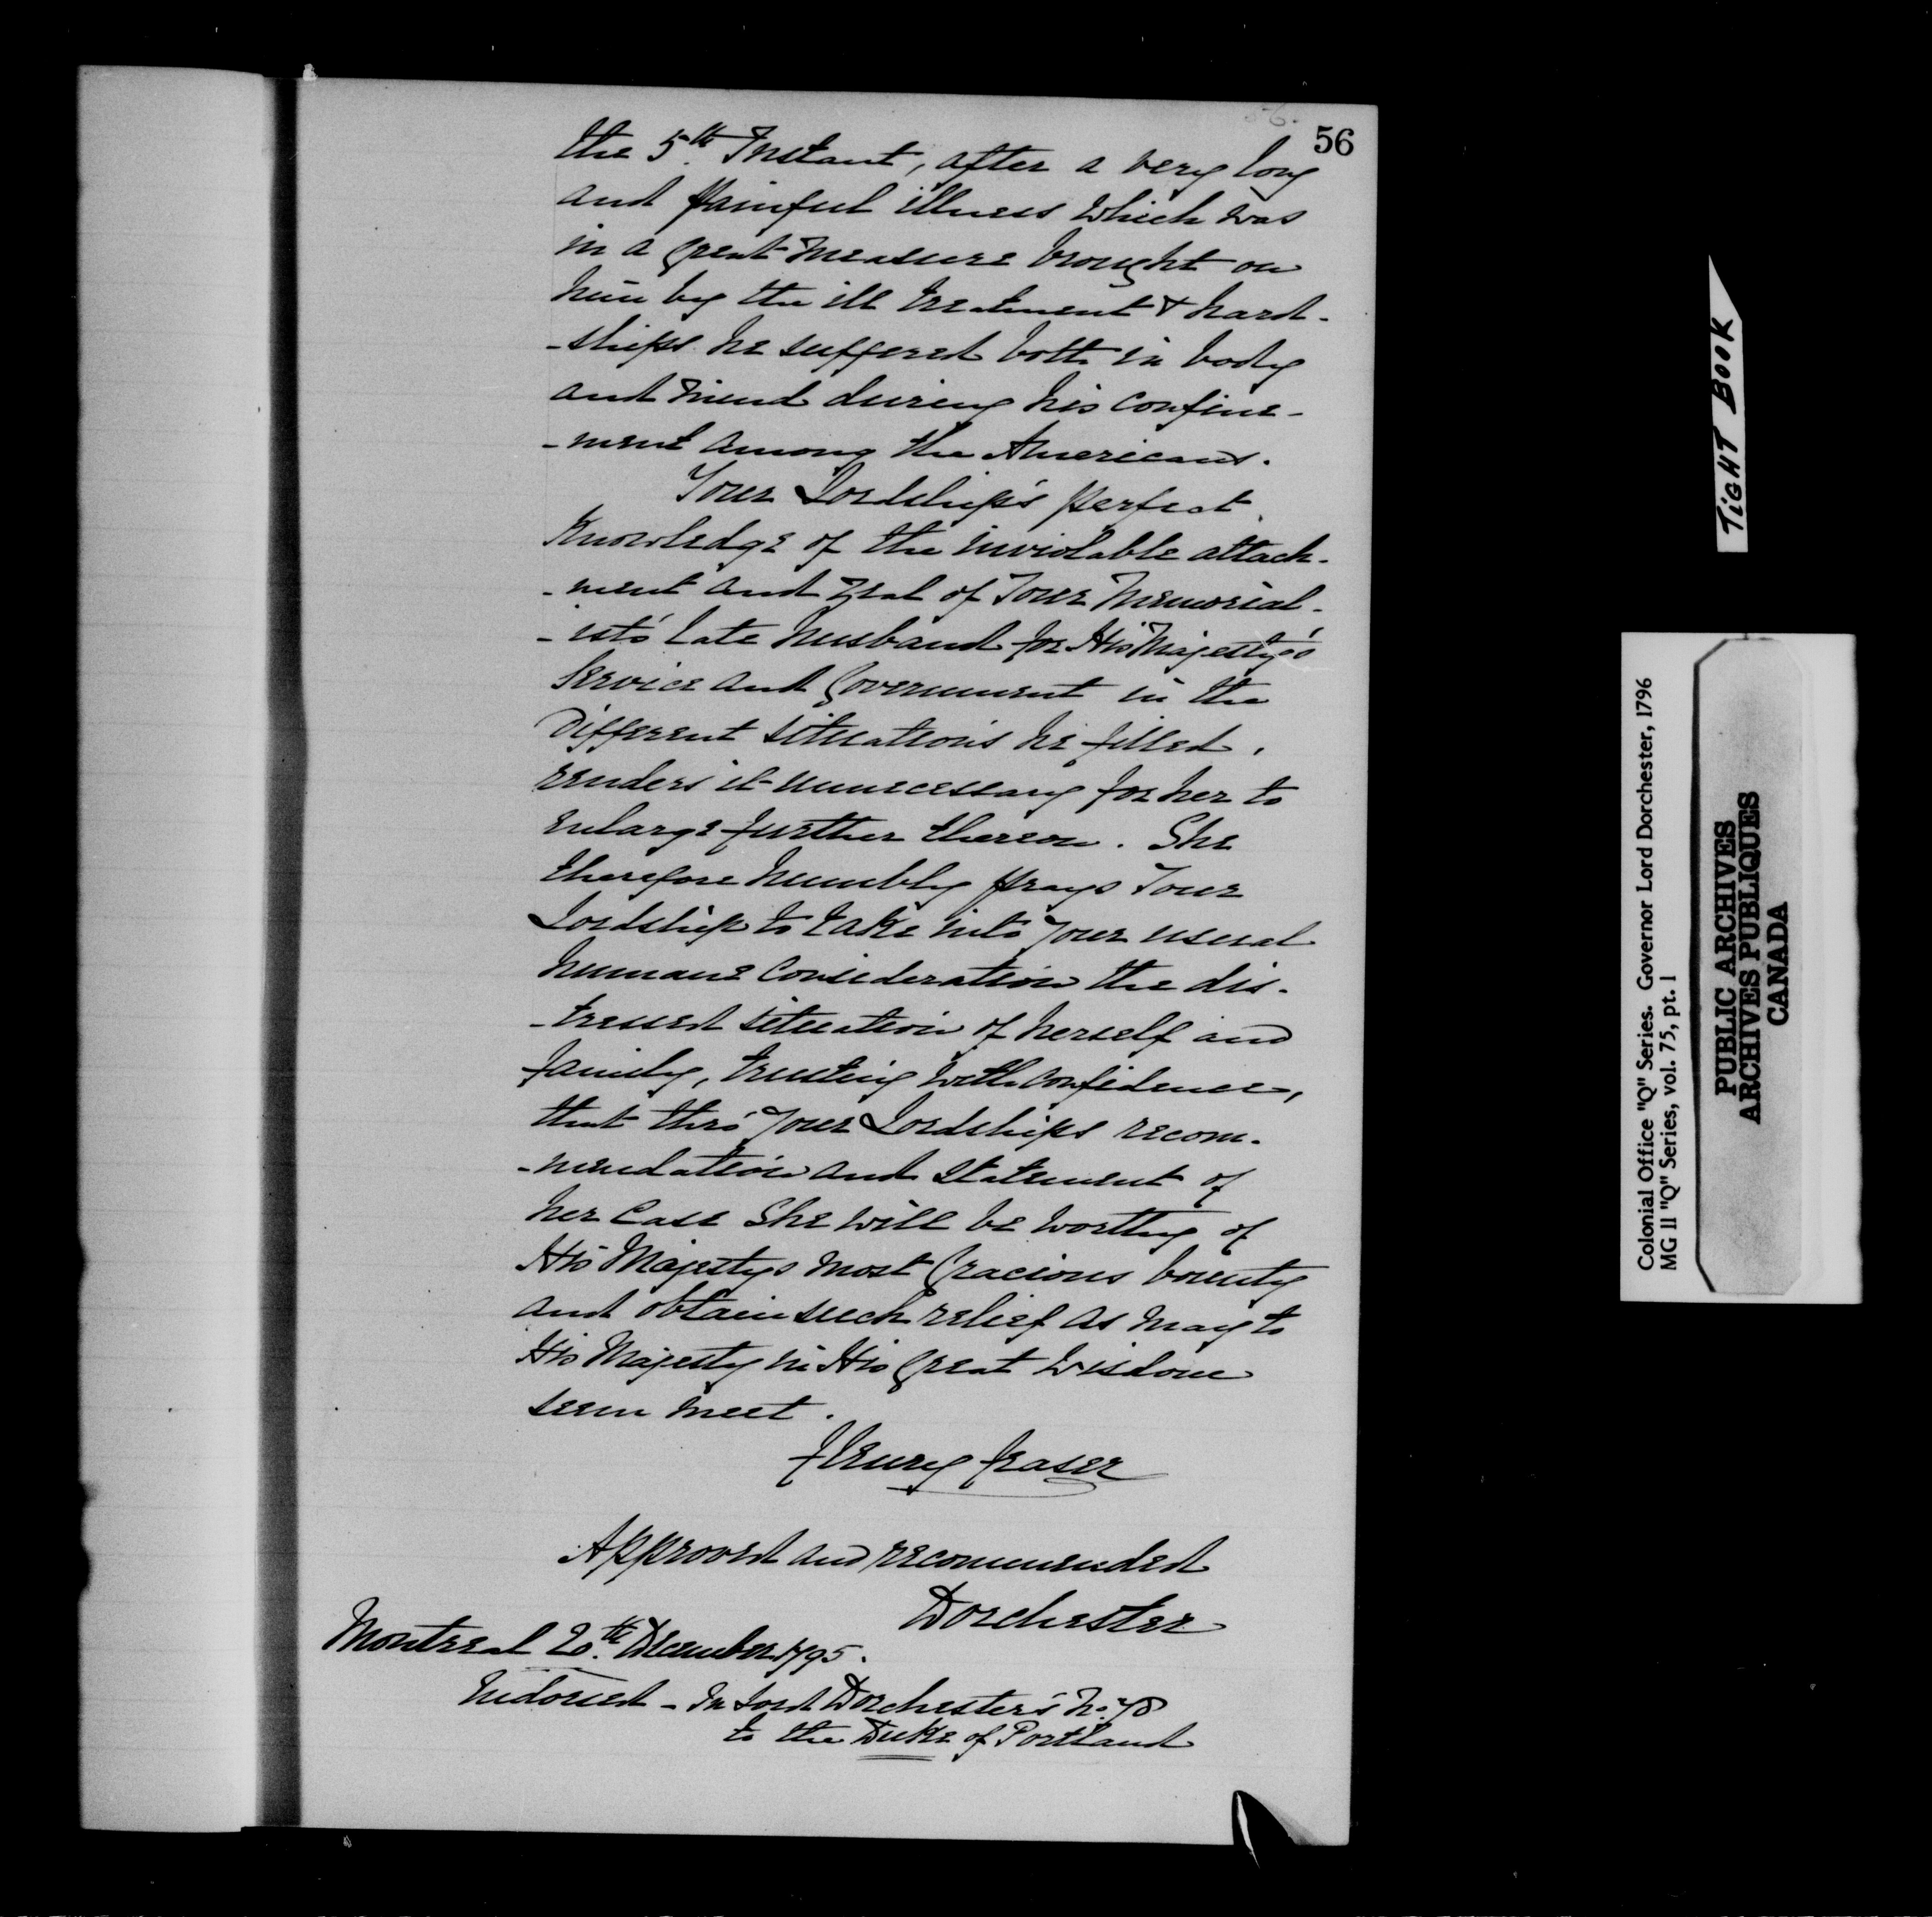 56.
56
the 5th Instant, after a very long
and painful illness which was
in a great measure brought on
him by the ill treatment & hard-
-ships he suffered both in body
and mind during his confine-
-ment among the Americans.
Your Lordship's perfect
knowledge of the inviolable attach-
-ment and zeal of Your Memorial-
-ist's late husband for His Majesty's
Service and Government in the
Different situations he filled,
renders it unnecessary for her to
enlarge further thereon. She
therefore humbly prays Your
Lordship to take into your usual
humane consideration the dis-
-tressed situation of herself and
family, trusting with confidence,
that thro' your Lordships recom-
-mendation and statement of
her Case She will be worthy of
His Majestys most Gracious bounty
and obtain such relief as may to
His Majesty in His Great Wisdom
seem meet.
Fleury Fraser
Approved and recommended
Dorchester
Montreal 20th December 1795.
Endorsed - In Lord Dorchester's No. 78
to the Duke of Portland
TIGHT BOOK
Colonial Office "Q" Series. Governor Lord Dorchester, 1796
MG 11 "Q" Series, vol. 75, pt. 1
PUBLIC ARCHIVES
ARCHIVES PUBLIQUES
CANADA